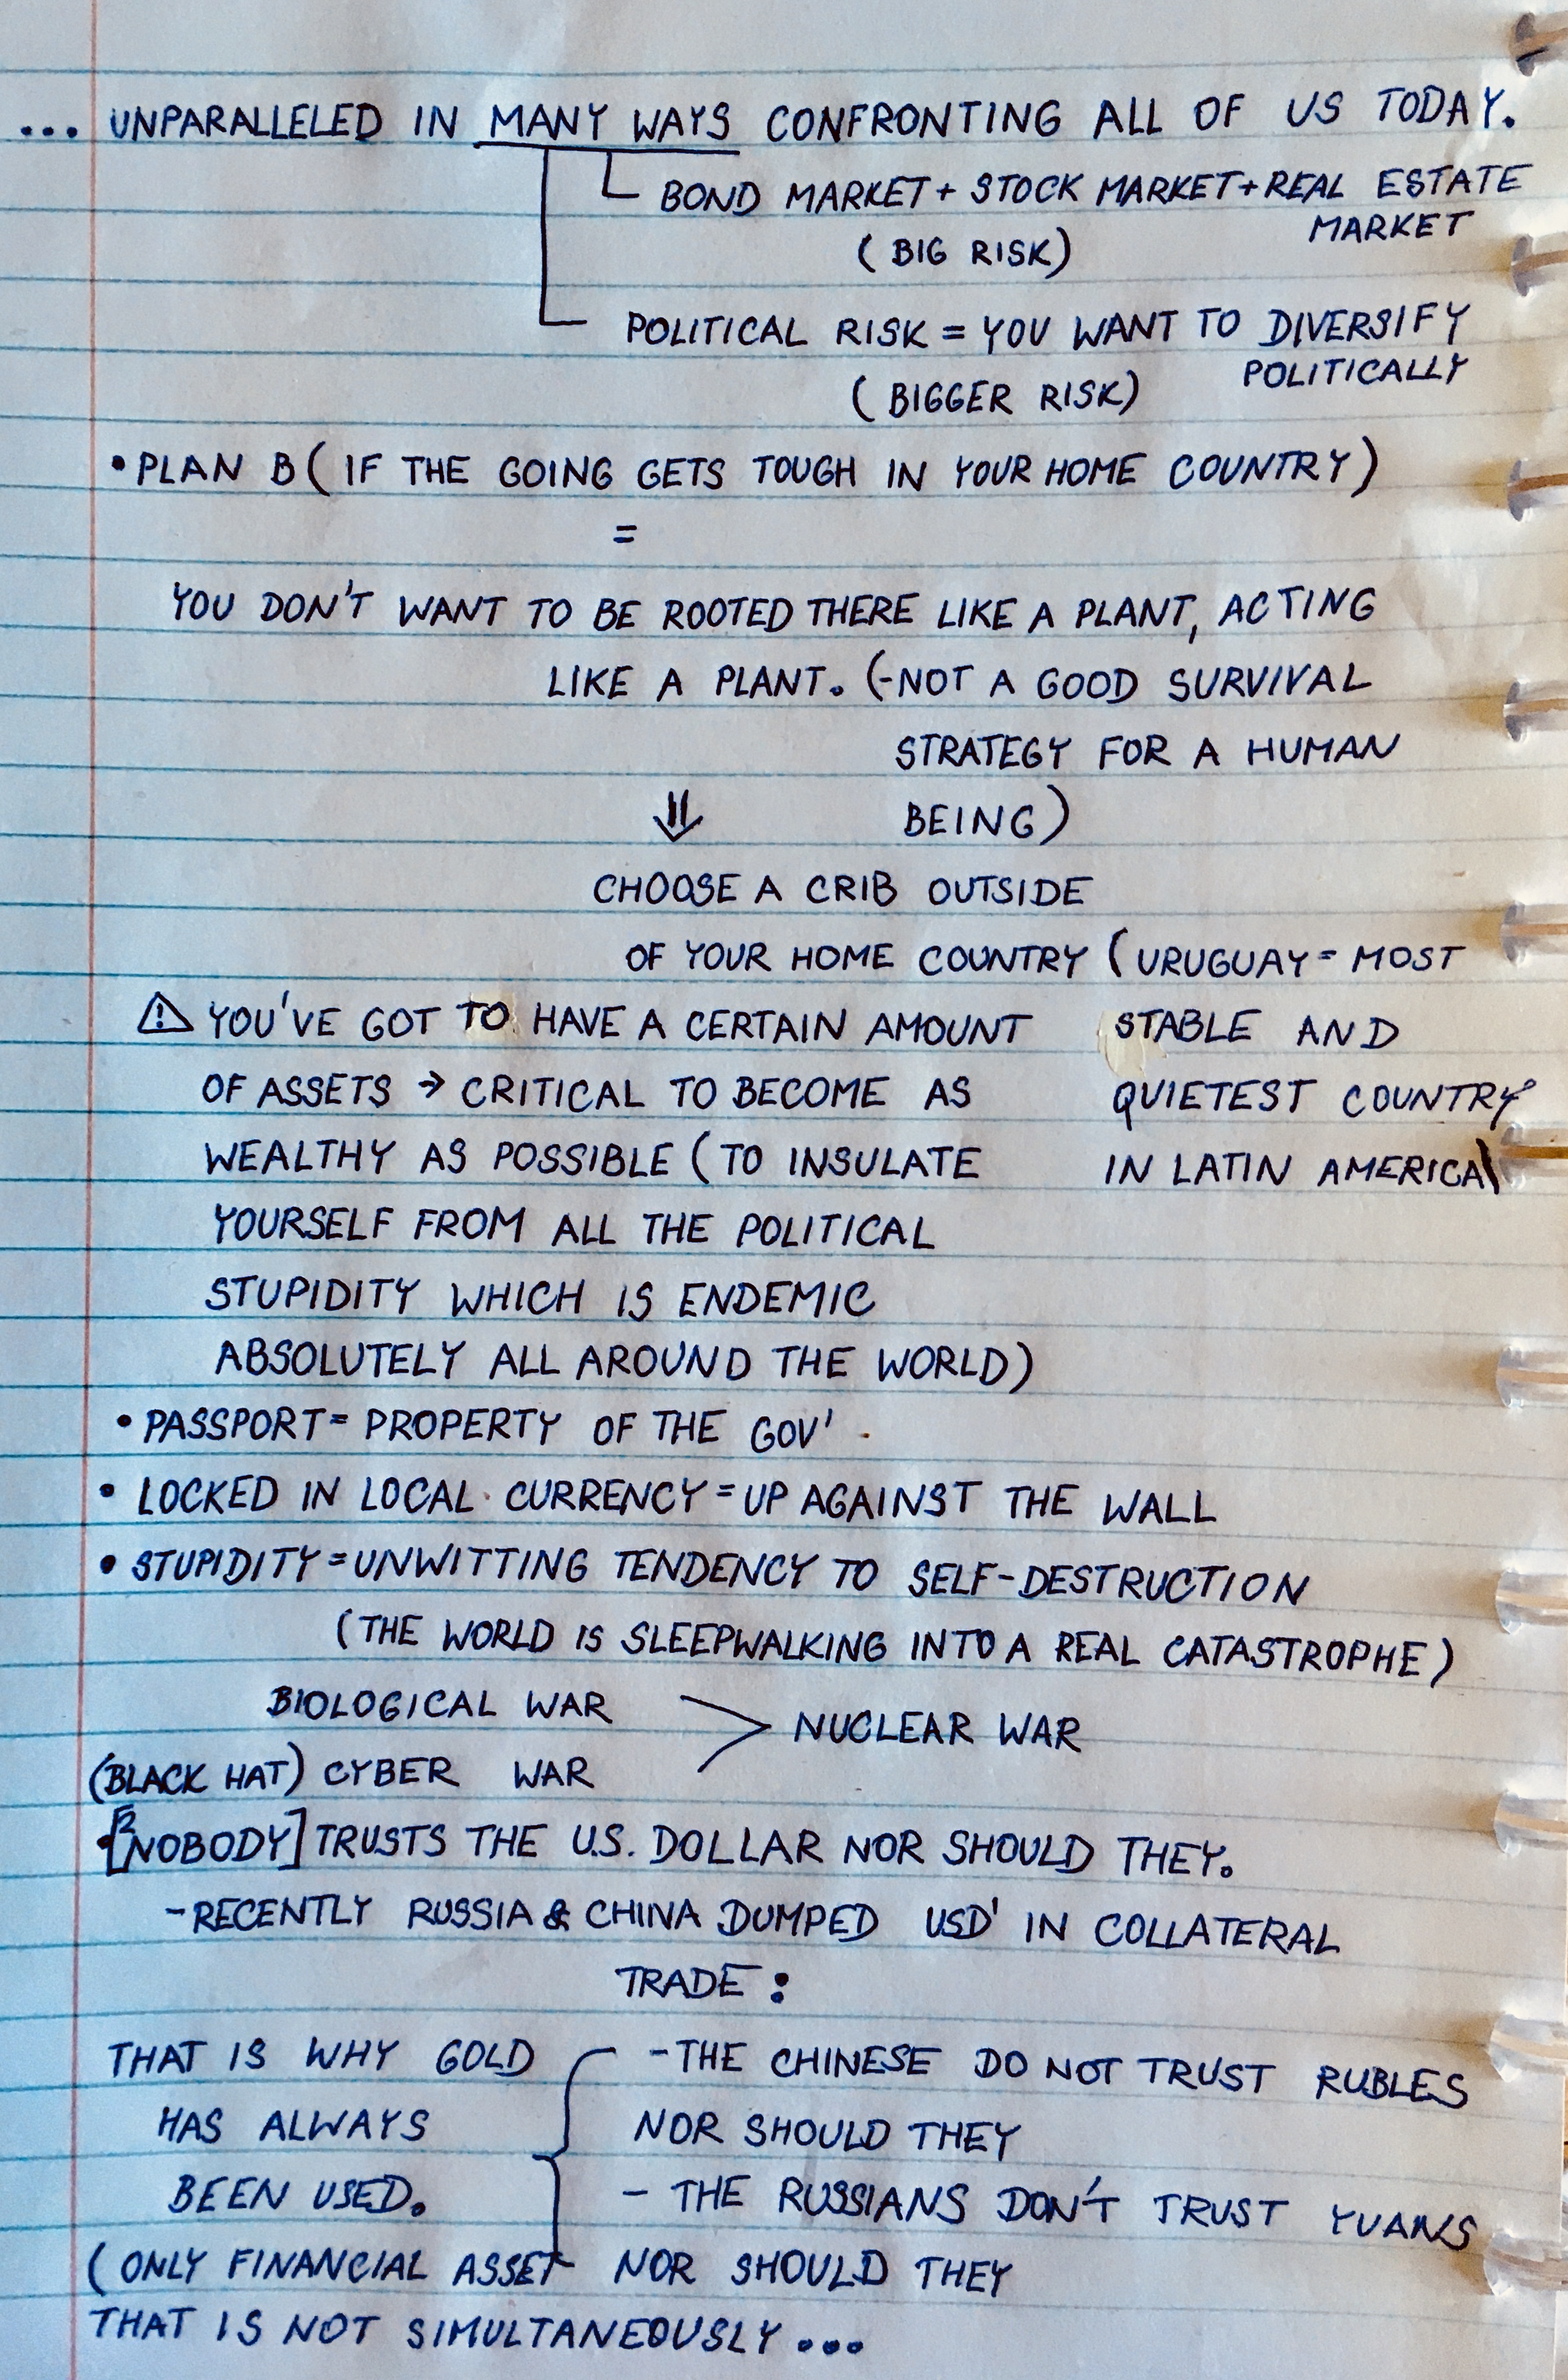 ... UNPARALLELED IN MANY WAYS CONFRONTING ALL OF US TODAY.
BOND MARKET + STOCK MARKET + REAL ESTATE
MARKET
(BIG RISK)
POLITICAL RISK = YOU WANT TO DIVERSIFY
POLITICALLY
(BIGGER RISK)
• PLAN B (IF THE GOING GETS TOUGH IN YOUR HOME COUNTRY)
=
YOU DON'T WANT TO BE ROOTED THERE LIKE A PLANT, ACTING
LIKE A PLANT. (-NOT A GOOD SURVIVAL
STRATEGY FOR A HUMAN
BEING)
⇓
CHOOSE A CRIB OUTSIDE
OF YOUR HOME COUNTRY (URUGUAY = MOST
STABLE AND
QUIETEST COUNTRY
IN LATIN AMERICA)
⚠ YOU'VE GOT TO HAVE A CERTAIN AMOUNT
OF ASSETS → CRITICAL TO BECOME AS
WEALTHY AS POSSIBLE (TO INSULATE
YOURSELF FROM ALL THE POLITICAL
STUPIDITY WHICH IS ENDEMIC
ABSOLUTELY ALL AROUND THE WORLD)
• PASSPORT = PROPERTY OF THE GOV'.
• LOCKED IN LOCAL CURRENCY = UP AGAINST THE WALL
• STUPIDITY = UNWITTING TENDENCY TO SELF-DESTRUCTION
(THE WORLD IS SLEEPWALKING INTO A REAL CATASTROPHE)
BIOLOGICAL WAR
> NUCLEAR WAR
(BLACK HAT) CYBER WAR
• [NOBODY] TRUSTS THE U.S. DOLLAR NOR SHOULD THEY.
- RECENTLY RUSSIA & CHINA DUMPED USD' IN COLLATERAL
TRADE:
THAT IS WHY GOLD
HAS ALWAYS
BEEN USED.
(ONLY FINANCIAL ASSET
THAT IS NOT SIMULTANEOUSLY...
- THE CHINESE DO NOT TRUST RUBLES
NOR SHOULD THEY
- THE RUSSIANS DON'T TRUST YUANS
NOR SHOULD THEY